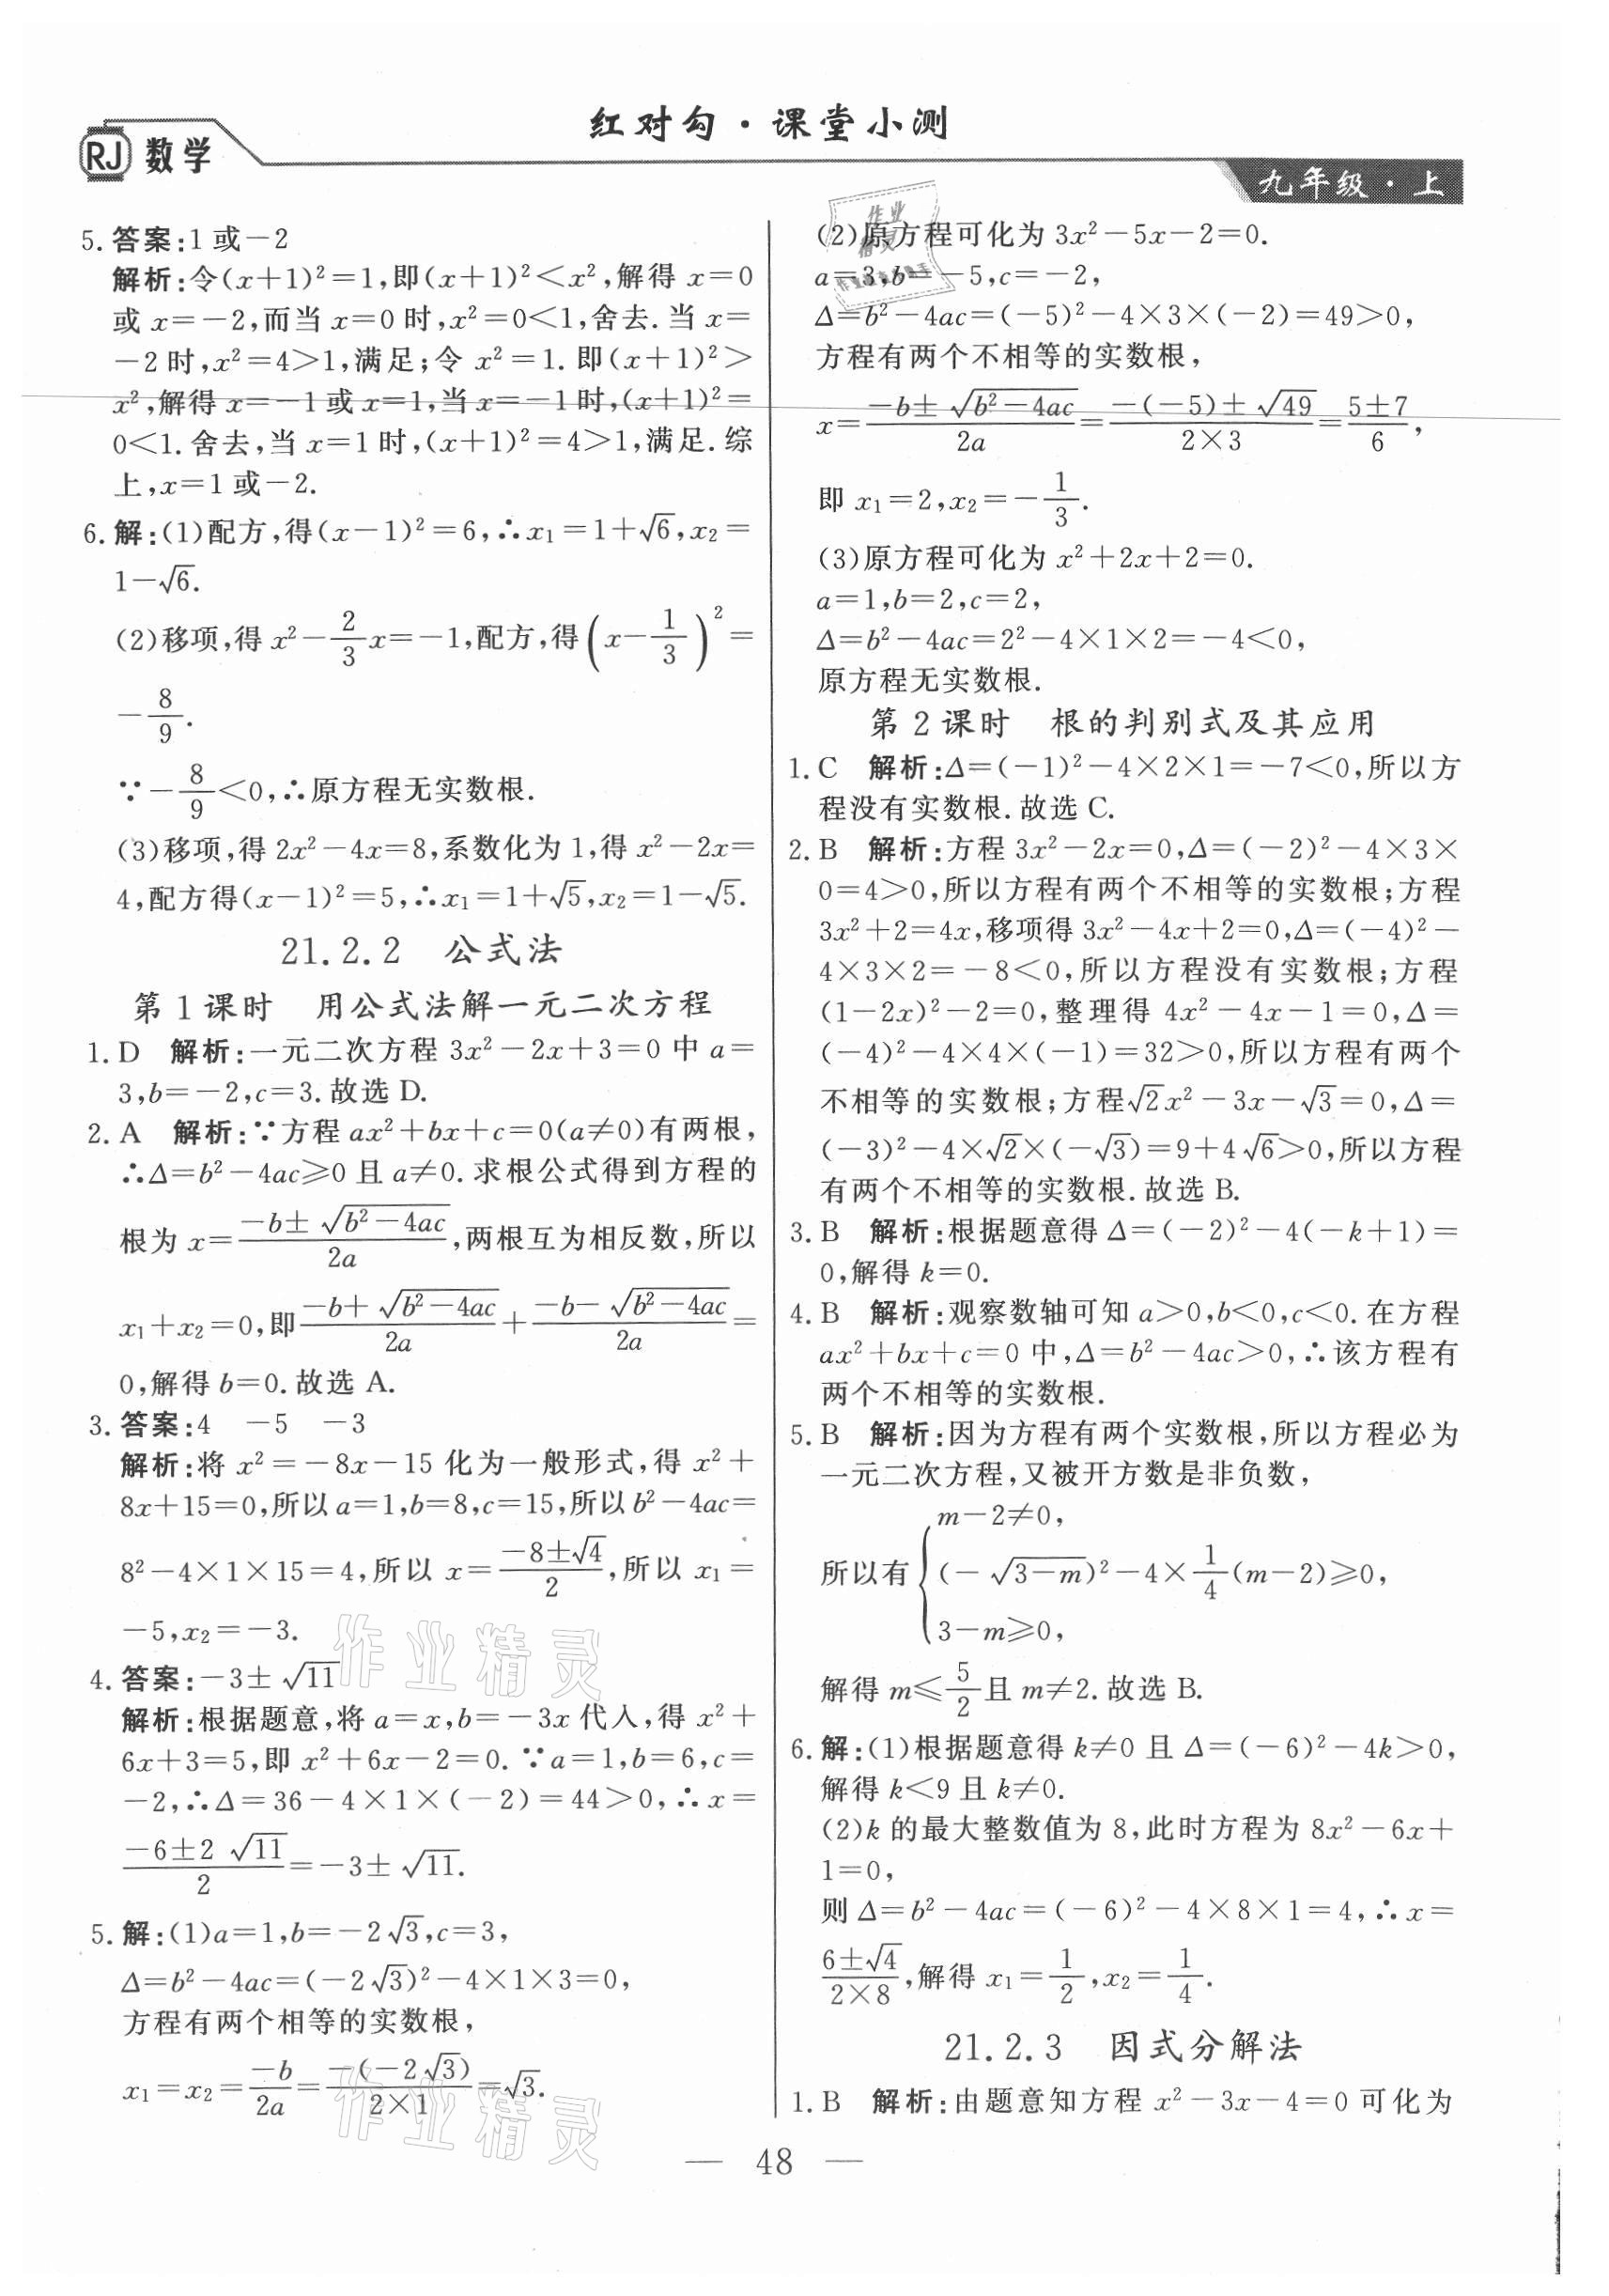 红对勾·课堂小测
RJ 数学
九年级·上
5. 答案:1或-2
解析:令(x+1)²=1,即(x+1)²<x²,解得 x=0
或 x=-2,而当 x=0 时,x²=0<1,舍去.当 x=
-2时,x²=4>1,满足;令 x²=1.即(x+1)²>
x²,解得 x=-1或 x=1,当 x=-1时,(x+1)²=
0<1.舍去,当 x=1 时,(x+1)²=4>1,满足.综
上,x=1或-2.
6. 解:(1)配方,得(x-1)²=6,∴x₁=1+√6,x₂=
1-√6.
(2)移项,得 x²-2/3x=-1,配方,得(x-1/3)²=
-8/9.
∵-8/9<0,∴原方程无实数根.
(3)移项,得 2x²-4x=8,系数化为1,得 x²-2x=
4,配方得(x-1)²=5,∴x₁=1+√5,x₂=1-√5.
21.2.2 公式法
第1课时 用公式法解一元二次方程
1. D 解析:一元二次方程 3x²-2x+3=0 中 a=
3,b=-2,c=3.故选 D.
2. A 解析:∵方程 ax²+bx+c=0(a≠0)有两根,
∴Δ=b²-4ac≥0 且 a≠0.求根公式得到方程的
根为 x=(-b±√(b²-4ac))/2a,两根互为相反数,所以
x₁+x₂=0,即(-b+√(b²-4ac))/2a+(-b-√(b²-4ac))/2a=
0,解得 b=0.故选 A.
3. 答案:4 -5 -3
解析:将 x²=-8x-15 化为一般形式,得 x²+
8x+15=0,所以 a=1,b=8,c=15,所以 b²-4ac=
8²-4×1×15=4,所以 x=(-8±√4)/2,所以 x₁=
-5,x₂=-3.
4. 答案:-3±√11
解析:根据题意,将 a=x,b=-3x 代入,得 x²+
6x+3=5,即 x²+6x-2=0.∵a=1,b=6,c=
-2,∴Δ=36-4×1×(-2)=44>0,∴x=
(-6±2√11)/2=-3±√11.
5. 解:(1)a=1,b=-2√3,c=3,
Δ=b²-4ac=(-2√3)²-4×1×3=0,
方程有两个相等的实数根,
x₁=x₂=-b/2a=-(-2√3)/(2×1)=√3.
(2)原方程可化为 3x²-5x-2=0.
a=3,b=-5,c=-2,
Δ=b²-4ac=(-5)²-4×3×(-2)=49>0,
方程有两个不相等的实数根,
x=(-b±√(b²-4ac))/2a=(-(-5)±√49)/(2×3)=(5±7)/6,
即 x₁=2,x₂=-1/3.
(3)原方程可化为 x²+2x+2=0.
a=1,b=2,c=2,
Δ=b²-4ac=2²-4×1×2=-4<0,
原方程无实数根.
第2课时 根的判别式及其应用
1. C 解析:Δ=(-1)²-4×2×1=-7<0,所以方
程没有实数根.故选 C.
2. B 解析:方程 3x²-2x=0,Δ=(-2)²-4×3×
0=4>0,所以方程有两个不相等的实数根;方程
3x²+2=4x,移项得 3x²-4x+2=0,Δ=(-4)²-
4×3×2=-8<0,所以方程没有实数根;方程
(1-2x)²-2=0,整理得 4x²-4x-1=0,Δ=
(-4)²-4×4×(-1)=32>0,所以方程有两个
不相等的实数根;方程√2x²-3x-√3=0,Δ=
(-3)²-4×√2×(-√3)=9+4√6>0,所以方程
有两个不相等的实数根.故选 B.
3. B 解析:根据题意得 Δ=(-2)²-4(-k+1)=
0,解得 k=0.
4. B 解析:观察数轴可知 a>0,b<0,c<0.在方程
ax²+bx+c=0 中,Δ=b²-4ac>0,∴该方程有
两个不相等的实数根.
5. B 解析:因为方程有两个实数根,所以方程必为
一元二次方程,又被开方数是非负数,
m-2≠0,
所以有{(-√(3-m))²-4×1/4(m-2)≥0,
3-m≥0,
解得 m≤5/2且 m≠2.故选 B.
6. 解:(1)根据题意得 k≠0 且 Δ=(-6)²-4k>0,
解得 k<9 且 k≠0.
(2)k 的最大整数值为 8,此时方程为 8x²-6x+
1=0,
则 Δ=b²-4ac=(-6)²-4×8×1=4,∴x=
(6±√4)/(2×8),解得 x₁=1/2,x₂=1/4.
21.2.3 因式分解法
1. B 解析:由题意知方程 x²-3x-4=0 可化为
— 48 —
作业精灵
作业精灵
作业
精灵